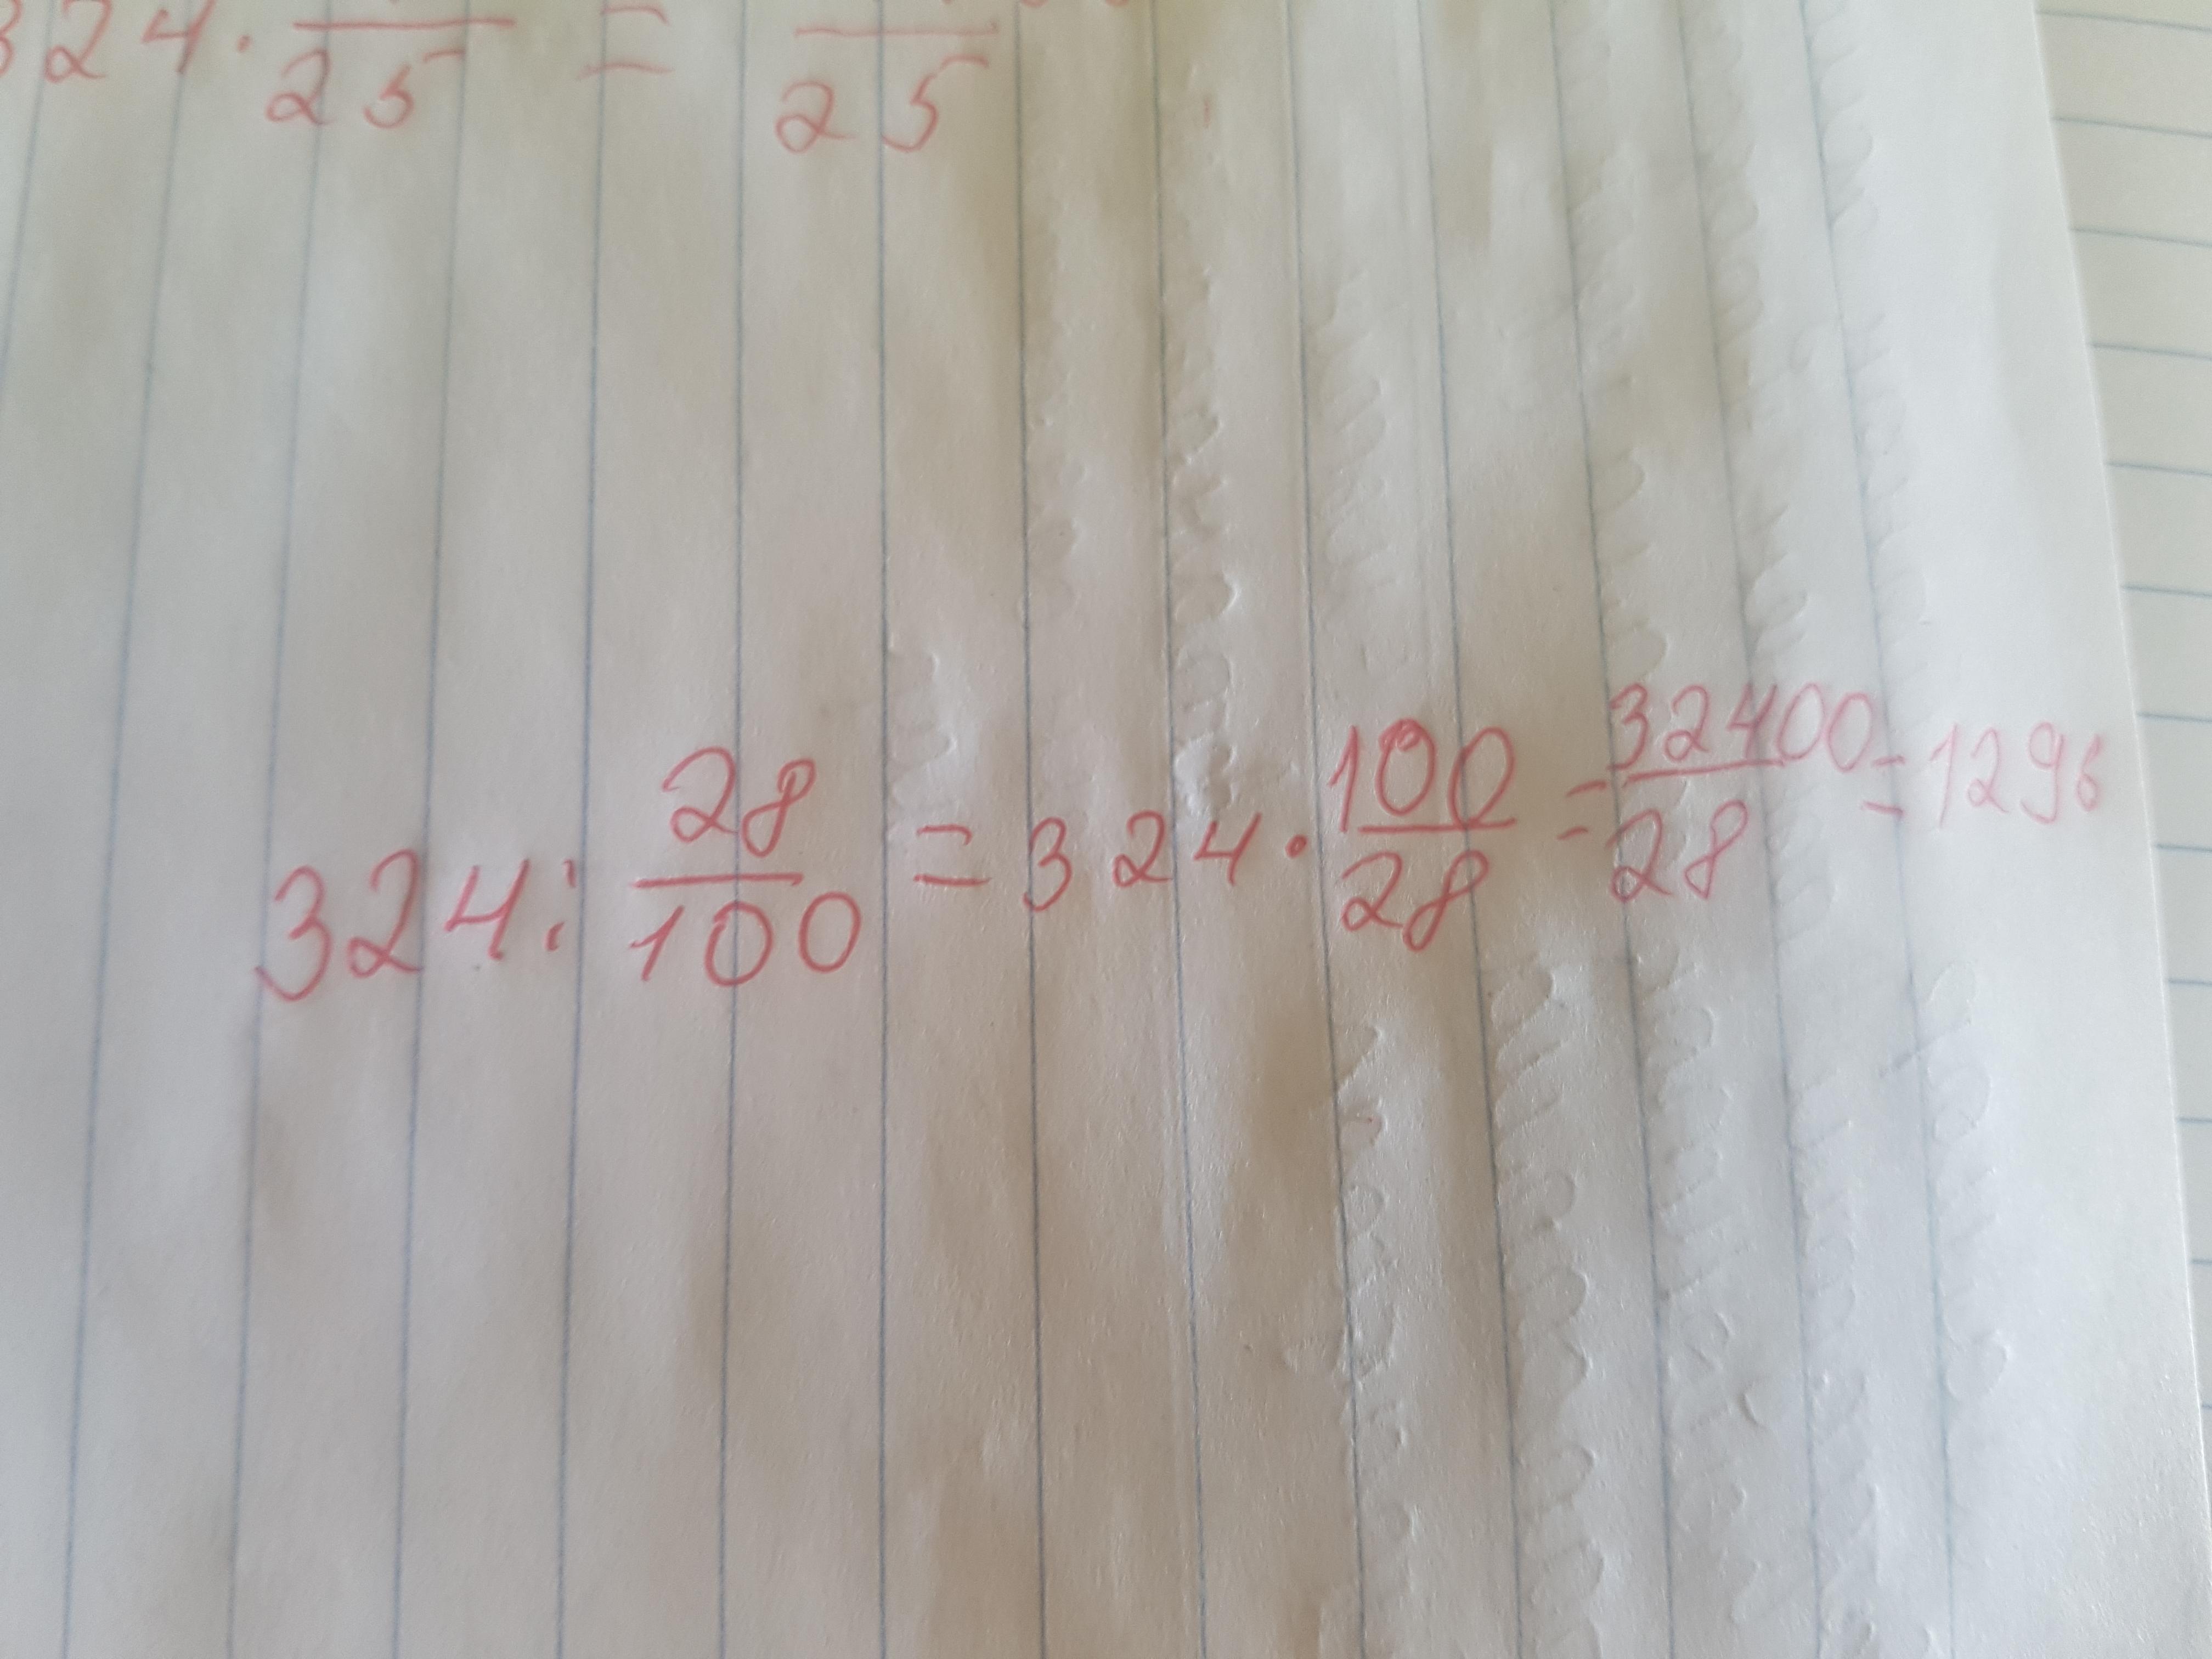 324 · /25 = /25
324 : 28/100 = 324 · 100/28 = 32400/28 = 1296